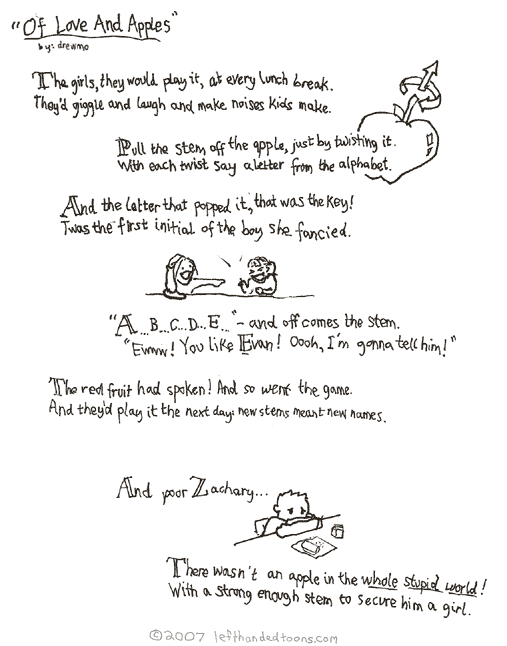 "Of Love And Apples"
by: drewmo
The girls, they would play it, at every lunch break.
They'd giggle and laugh and make noises kids make.
Pull the stem off the apple, just by twisting it.
With each twist say a letter from the alphabet.
And the letter that popped it, that was the key!
Twas the first initial of the boy she fancied.
"A...B...C...D...E..." - and off comes the stem.
"Ewww! You like Evan! Oooh, I'm gonna tell him!"
The red fruit had spoken! And so went the game.
And they'd play it the next day: new stems meant new names.
And poor Zachary...
There wasn't an apple in the whole stupid world!
With a strong enough stem to secure him a girl.
©2007 lefthandedtoons.com